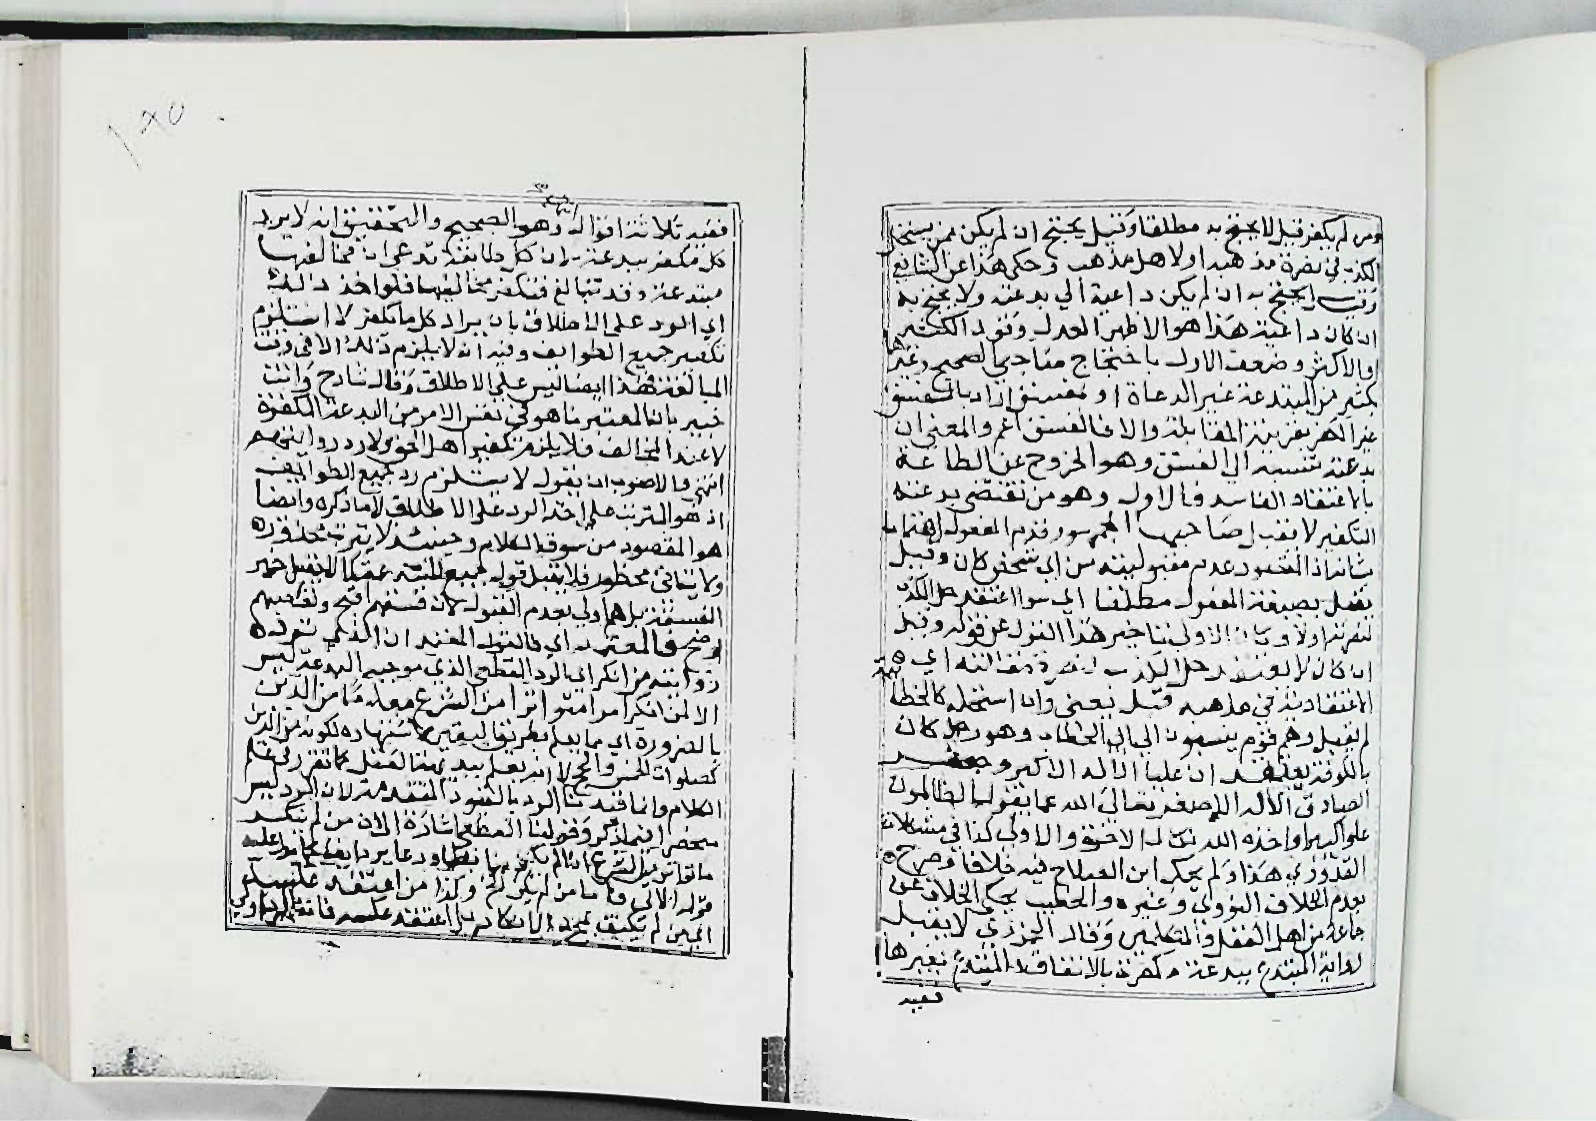 ومن لم يكفر قيل لا يحتج به مطلقا وقيل يحتج ان لم يكن ممن يستحل
الكذب في نصرة مذهبه او لاهل مذهبه وحكى هذا عن الشافعي
وقيل يحتج به ان لم يكن داعية الى بدعته ولا يحتج به
ان كان داعية هذا هو الاظهر الاعدل وقول الكثير
او الاكثر وضعف الاول باحتجاج صاحبي الصحيح وغيرهما
بكثير من المبتدعة غير الدعاة او بمفسق اراد بالمفسق
غير الكفر بقرينة المقابلة والا فالفسق اعم والمعنى ان
بدعته تنسبه الى الفسق وهو الخروج عن الطاعة
بالاعتقاد الفاسد فالاول وهو من تقتضي بدعته
التكفير لا تقبل صاحبها الجمهور وقدم المفعول اهتماما
شانه اذ المقصود عدم مقبوليته من اي شخص كان وقيل
يقبل بصيغة المفعول مطلقا اي سوا اعتقد حل الكذب
لنصرته اولا وكان الاولى تاخير هذا القول عن قوله وقيل
ان كان لا يعتقد حل الكذب لنصرة مقالته اي
الاعتقادية في مذهبه قبل يعني وان استحله كالخطا
لم يقبل وهم قوم ينسبون الى ابي الخطاب وهو رجل كان
بالكوفة يعتقد ان عليا الاله الاكبر وجعفر
الصادق الاله الاصغر تعالى الله عما يقول الظالمون
علوا كبيرا واخذه الله نكال الاخرة والاولى كذا في مشكلات
القدوري هذا ولم يحك ابن الصلاح فيه خلافا وصرح
بعدم الخلاف النووي وغيره والخطيب يحكي الخلاف عن
جماعة من اهل النقل والمتكلمين وقال الجزري لا يقبل
رواية المبتدع ببدعة مكفرة بالاتفاق والمبتدع بغيرها
ففيه
١٨٥
ففيه ثلاثة اقوال انتهى وهو الصحيح والتحقيق انه لا يرد
كل مكفر ببدعته لان كل طائفة تدعي ان مخالفيها
مبتدعة وقد تبالغ فتكفر مخالفيها فلو اخذ ذلك
اي الرد على الاطلاق بان يراد كل ما يكفر لاستلزم
تكفير جميع الطوايف وفيه انه لا يلزم ذلك الا في وقت
المبالغة فهذا ايضا ليس على الاطلاق وقال شارح وانت
خبير بان المعتبر ما هو في نفس الامر من البدعة المكفرة
لا عند المخالف فلا يلزم تكفير اهل الحق ولا رد روايتهم
انتهى فالاصوب ان يقول لا يستلزم رد جميع الطوايف
اذ هو المترتب على اخذ الرد على الاطلاق لا ما ذكره وايضا
هو المقصود من سوق الكلام وحينئذ لا يترتب محذوره
ولا ينافي محظور فلا يقبل قول جميع
الفسقة بل هم اولى بعدم القبول لان فسقهم اقبح
اوضح فالمعتمد اي فالقول المعتمد ان الذي ترد
روايته من انكر اي الرد القطعي الذي موجبه البدعة ليس
الا لمن انكر امرا متواترا من الشرع معلوما من الدين
بالضرورة اي مما يعلم بطريق اليقين لاشتهاره لكونه من الدين
كصلوات الخمس والحج لا انه يعلم ببديهة العقل كما تقرر في علم
الكلام وانما قيدنا الرد بالقيود المتقدمة لان الرد ليس
منحصرا فيما ذكر وقولنا القطعي اشارة الى ان من لم ينكر
قوله الآتي فاما من لم يكن الخ وكذا من اعتقد عكسه